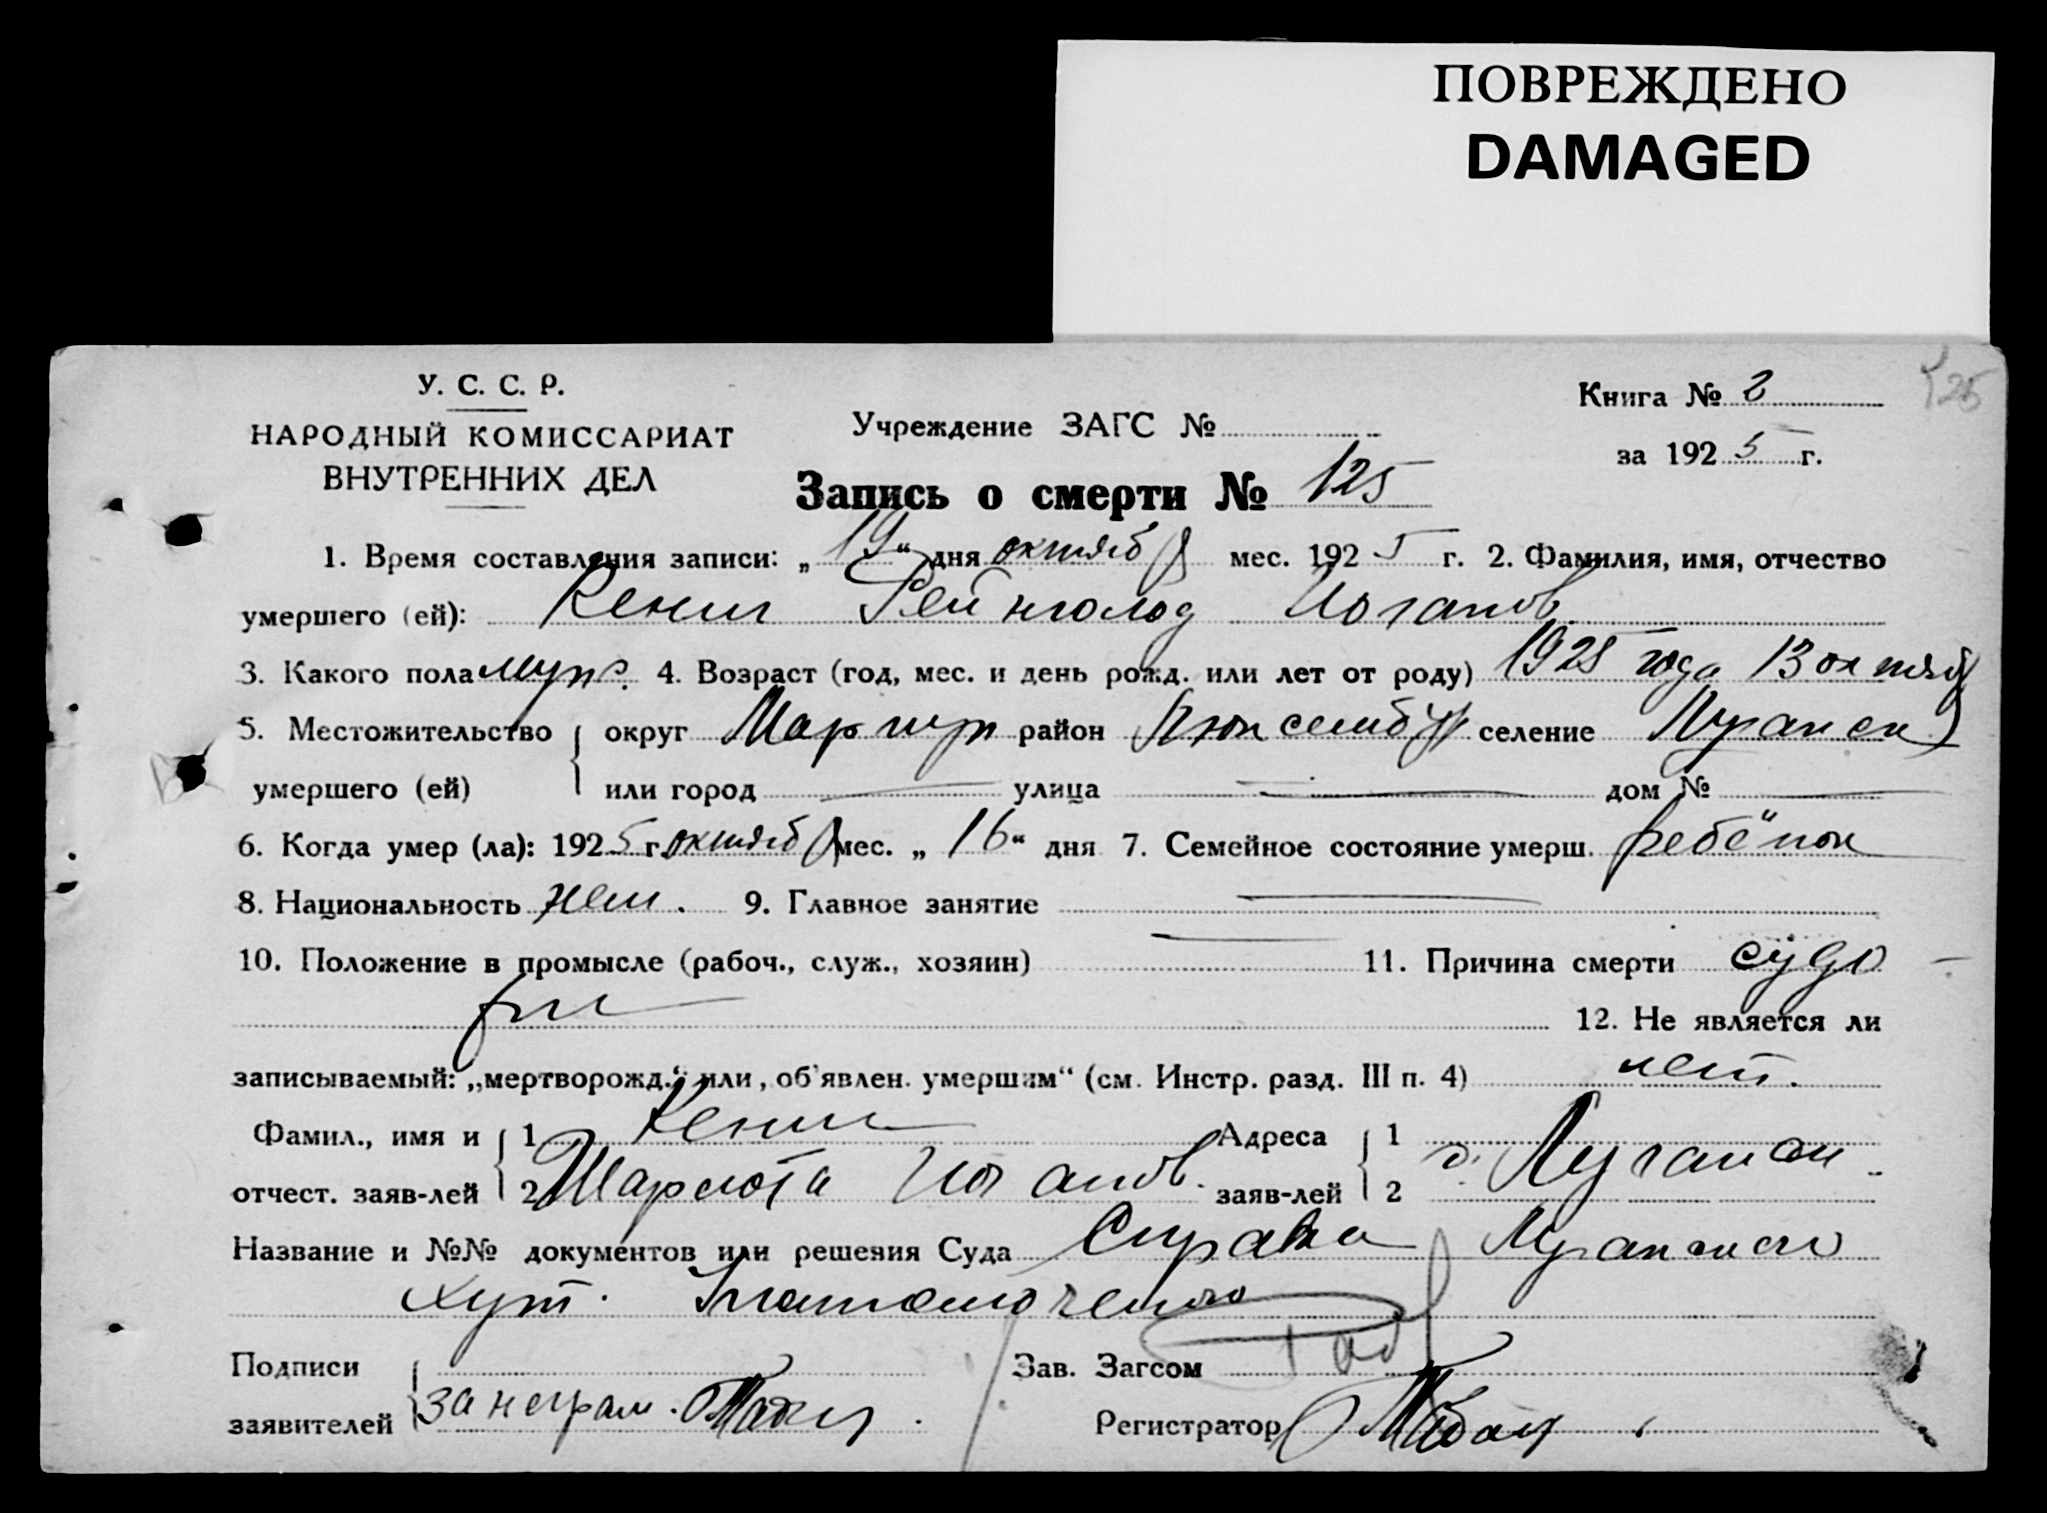 ПОВРЕЖДЕНО
DAMAGED
У. С. С. Р.
НАРОДНЫЙ КОМИССАРИАТ
ВНУТРЕННИХ ДЕЛ
Учреждение ЗАГС №
Книга № 2
125
за 1925 г.
Запись о смерти № 125
1. Время составления записи: „19“ дня октября мес. 1925 г. 2. Фамилия, имя, отчество
умершего (ей): Кениг Рейнгольд Иоганов
3. Какого пола муж. 4. Возраст (год, мес. и день рожд. или лет от роду) 1925 года 13 октяб
5. Местожительство округ Мариуп район Люксембур селение Луганск
умершего (ей) или город — улица — дом № —
6. Когда умер (ла): 1925 г. октября мес. „16“ дня 7. Семейное состояние умерш. ребёнок
8. Национальность нем. 9. Главное занятие —
10. Положение в промысле (рабоч., служ., хозяин) — 11. Причина смерти судо-
роги
12. Не является ли
записываемый: „мертворожд.“ или „об'явлен. умершим“ (см. Инстр. разд. III п. 4) нет.
Фамил., имя и 1 Кениг Адреса 1
отчест. заяв-лей 2 Шарлота Иоганов. заяв-лей 2 Луганск
Название и №№ документов или решения Суда Справка Луганского
хут. Уполномоченого
Подписи Зав. Загсом
заявителей за неграм. Регистратор